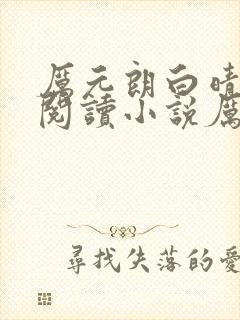 厲元朗白晴
閱讀小說厲
尋找失落的愛